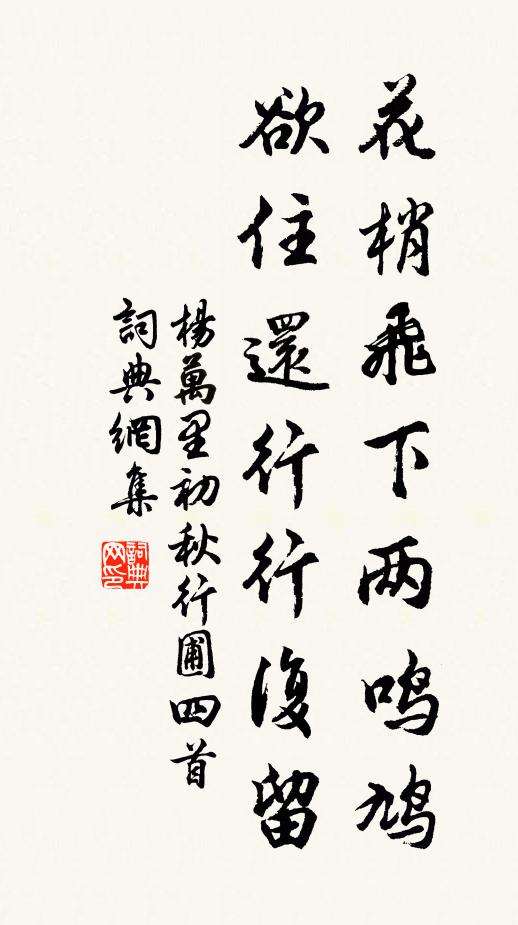 花梢飛下两鳴鳩
欲住還行行復留
楊萬里初秋行圃四首
詞典網集
詞典网印